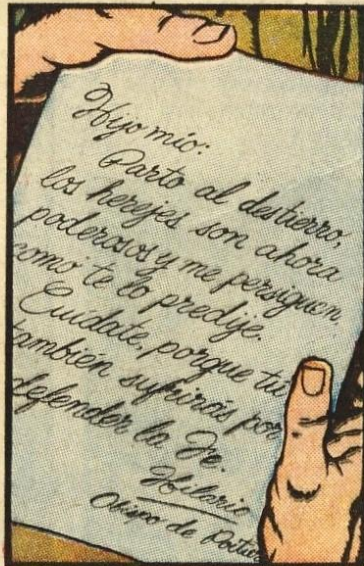 Hijo mío:
Parto al destierro,
los herejes son ahora
poderosos y me persiguen,
como te lo predije.
Cuídate, porque tú
también sufrirás por
defender la Fe.
Hilario
Obispo de